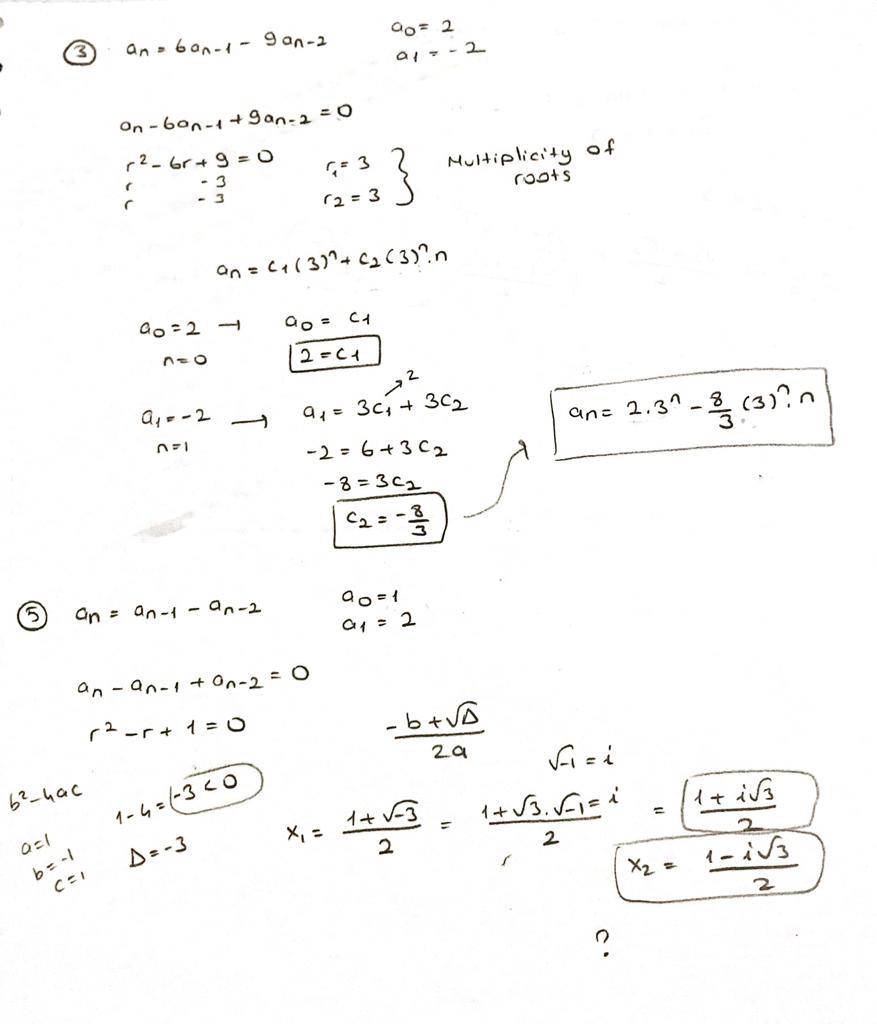 ③ an = 6an-1 - 9an-2 a0 = 2
a1 = -2
an - 6an-1 + 9an-2 = 0
r² - 6r + 9 = 0 r1 = 3 } Multiplicity of
r - 3 roots
r - 3 r2 = 3
an = c1(3)ⁿ + c2(3)ⁿ.n
a0 = 2 → a0 = c1
n=0 2 = c1
a1 = -2 → a1 = 3c1 + 3c2
2
n=1 -2 = 6 + 3c2
-8 = 3c2
c2 = -8/3
an = 2.3ⁿ - 8/3 (3)ⁿ.n
⑤ an = an-1 - an-2 a0 = 1
a1 = 2
an - an-1 + an-2 = 0
r² - r + 1 = 0 -b + √Δ / 2a
√-1 = i
b² - 4ac 1-4 = -3 < 0
a=1
b=-1
c=1
Δ = -3
x1 = 1 + √-3 / 2 = 1 + √3 . √-1 = i / 2 = 1 + i√3 / 2
x2 = 1 - i√3 / 2
?